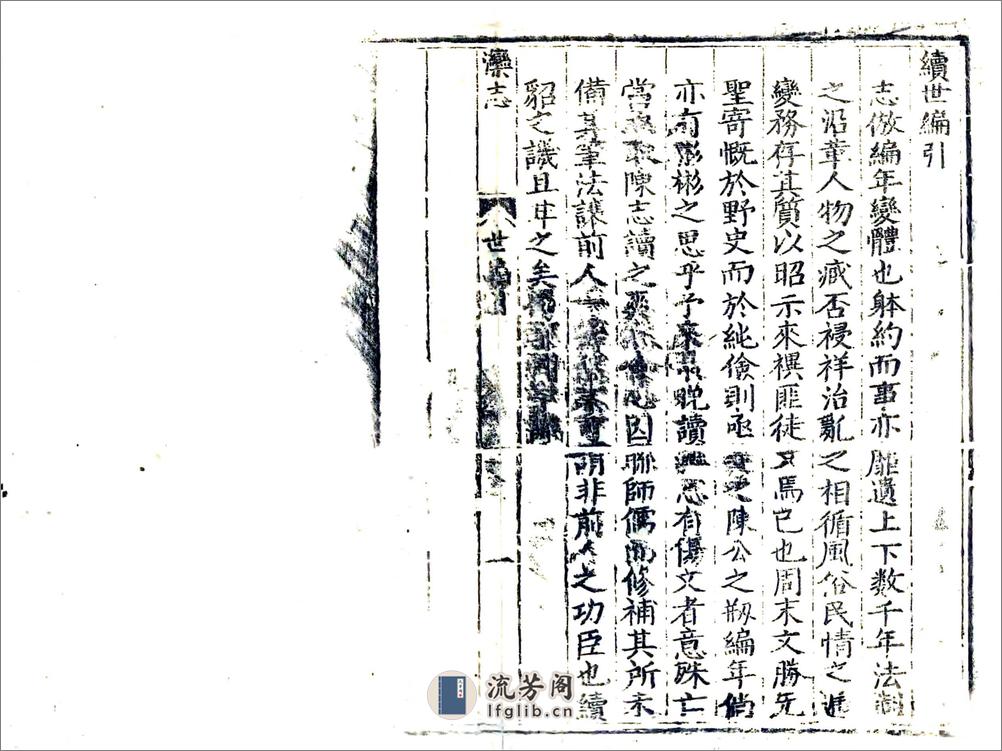 續世編引
志倣編年變體也躰約而事亦靡遺上下数千年法制
之沿革人物之臧否祲祥治亂之相循風俗民情之遞
變務存其質以昭示來禩匪徒文焉已也周末文勝先
聖寄慨於野史而於純儉則亟 陳公之刱編年倘
亦有彬彬之思乎予來 晚讀 志有傷文者意殊亡
當 取陳志讀之 心因聯師儒而修補其所未
備其筆法讓前人 明非前人之功臣也續
貂之譏且甘之矣
灤志
世編
一
流芳阁
lfglib.cn